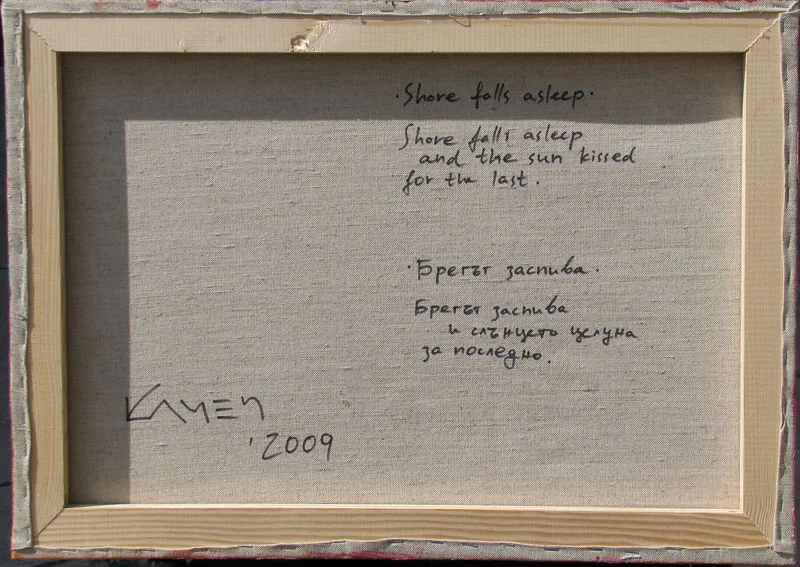 ·Shore falls asleep.
Shore falls asleep
and the sun kissed
for the last.
·Брегът заспива.
Брегът заспива
и слънцето целуна
за последно.
KAMEN
'2009